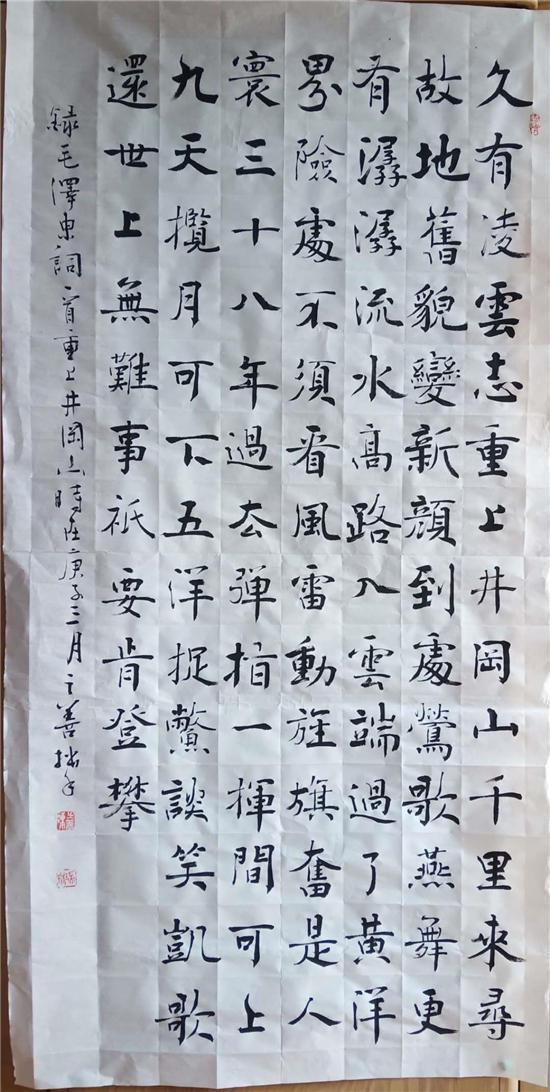 久有凌雲志重上井岡山千里來尋
故地舊貌變新顏到處鶯歌燕舞更
有潺潺流水高路入雲端過了黃洋
界險處不須看風雷動旌旗奮是人
寰三十八年過去彈指一揮間可上
九天攬月可下五洋捉鱉談笑凱歌
還世上無難事祇要肯登攀
録毛澤東詞一首重上井岡山時在庚子三月善